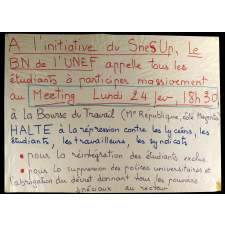 A l'initiative du SneSUp, Le
BN de l'UNEF appelle tous les
étudiants à participer massivement
au Meeting Lundi 24 fev, 18h30
à la Bourse du Travail (Mº République, côté Magenta)
HALTE à la répression contre les lycéens, les
étudiants, les travailleurs, les syndicats
• pour la réintégration des étudiants exclus
• pour la suppression des polices universitaires et
l'abrogation du décret donnant tous les pouvoirs
spéciaux au recteur